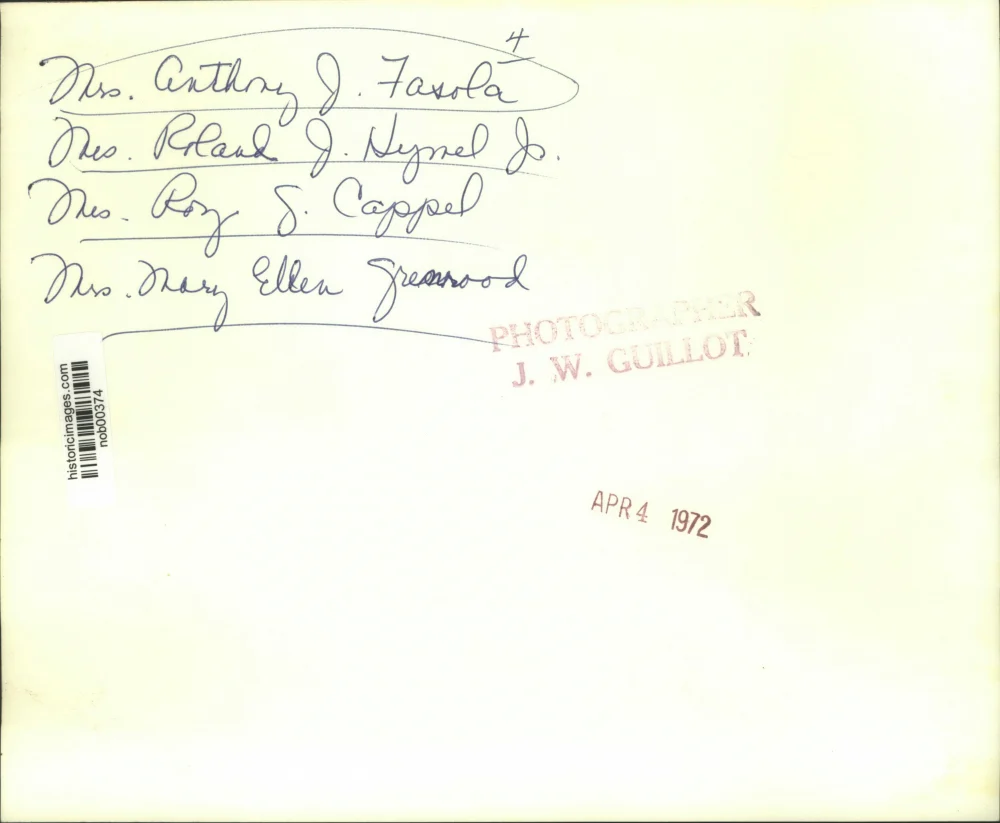 4
Mrs. Anthony J. Fasola
Mrs. Roland J. Hymel Jr.
Mrs. Roy S. Cappel
Mrs. Mary Ellen Greenwood
PHOTOGRAPHER
J. W. GUILLOT
historicimages.com
nob00374
APR 4 1972